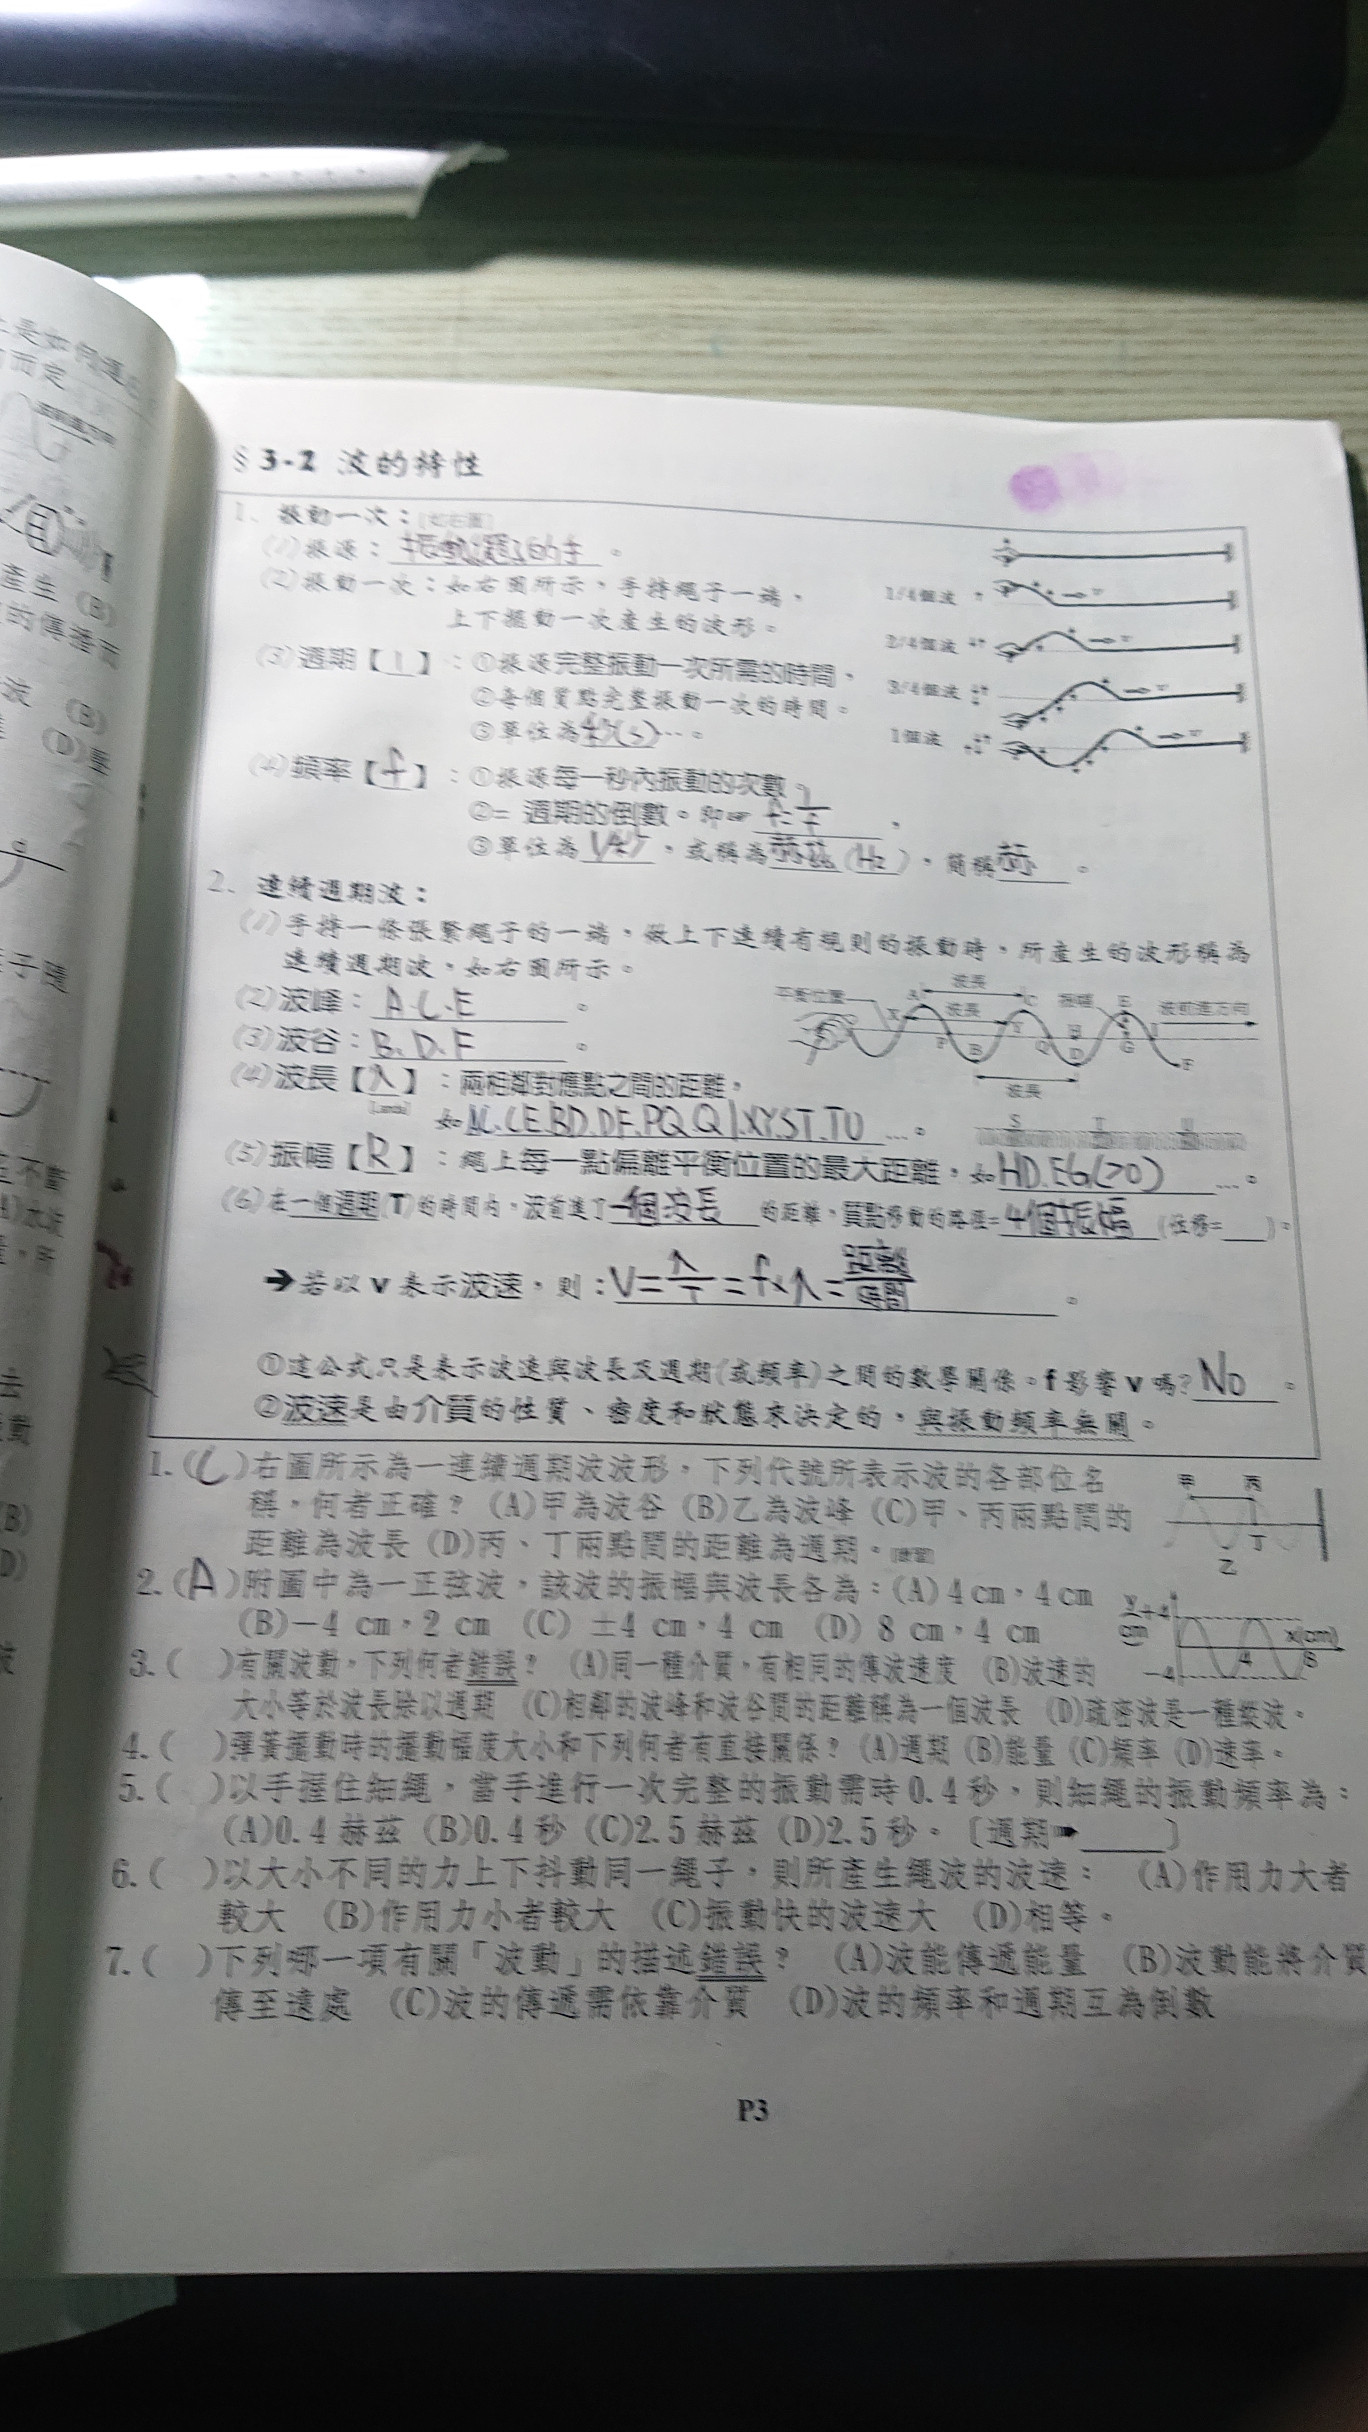 § 3-2 波的特性
1、振動一次：
(1)振源：振動繩子的手。
(2)振動一次：如右圖所示，手持繩子一端，
上下振動一次產生的波形。
1/4個波
2/4個波
3/4個波
1個波
(3)週期【】：①振源完整振動一次所需的時間，
②每個質點完整振動一次的時間。
③單位為秒(s)…。
(4)頻率【f】：①振源每一秒內振動的次數
②= 週期的倒數。即☞ f=
③單位為1/秒，或稱為赫茲(Hz)，簡稱赫。
2、連續週期波：
(1)手持一條張緊繩子的一端，做上下連續有規則的振動時，所產生的波形稱為
連續週期波，如右圖所示。
(2)波峰：A.C.E。
(3)波谷：B.D.F。
平衡位置 A 波長 C 振幅 E 波前進方向
X 波長 Y H
P B Q D G F
波長
S T U
(4)波長【λ】：兩相鄰對應點之間的距離，
如AC.CE.BD.DF.PQ.QI.XY.ST.TU…。
(5)振幅【R】：繩上每一點偏離平衡位置的最大距離，如HD.EG(>0)…。
(6)在一個週期(T)的時間內，波前進了一個波長的距離，質點移動的路徑=4個振幅(位移=___)。
➔若以v表示波速，則：V=λ/T=f×λ=距離/時間。
①這公式只是表示波速與波長及週期(或頻率)之間的數學關係。f影響v嗎？No。
②波速是由介質的性質、密度和狀態來決定的，與振動頻率無關。
1.(C)右圖所示為一連續週期波波形，下列代號所表示波的各部位名
稱，何者正確？ (A)甲為波谷 (B)乙為波峰 (C)甲、丙兩點間的
距離為波長 (D)丙、丁兩點間的距離為週期。
甲 丙
丁
乙
2.(A)附圖中為一正弦波，該波的振幅與波長各為：(A)4 cm，4 cm
(B)−4 cm，2 cm (C) ±4 cm，4 cm (D) 8 cm，4 cm
y +4
cm x(cm)
4 8
−4
3.( )有關波動，下列何者錯誤？ (A)同一種介質，有相同的傳波速度 (B)波速的
大小等於波長除以週期 (C)相鄰的波峰和波谷間的距離稱為一個波長 (D)疏密波是一種縱波。
4.( )彈簧擺動時的擺動幅度大小和下列何者有直接關係？ (A)週期 (B)能量 (C)頻率 (D)速率。
5.( )以手握住細繩，當手進行一次完整的振動需時0.4秒，則細繩的振動頻率為：
(A)0.4赫茲 (B)0.4秒 (C)2.5赫茲 (D)2.5秒。〔週期➨____〕
6.( )以大小不同的力上下抖動同一繩子，則所產生繩波的波速： (A)作用力大者
較大 (B)作用力小者較大 (C)振動快的波速大 (D)相等。
7.( )下列哪一項有關「波動」的描述錯誤？ (A)波能傳遞能量 (B)波動能將介質
傳至遠處 (C)波的傳遞需依靠介質 (D)波的頻率和週期互為倒數
P3